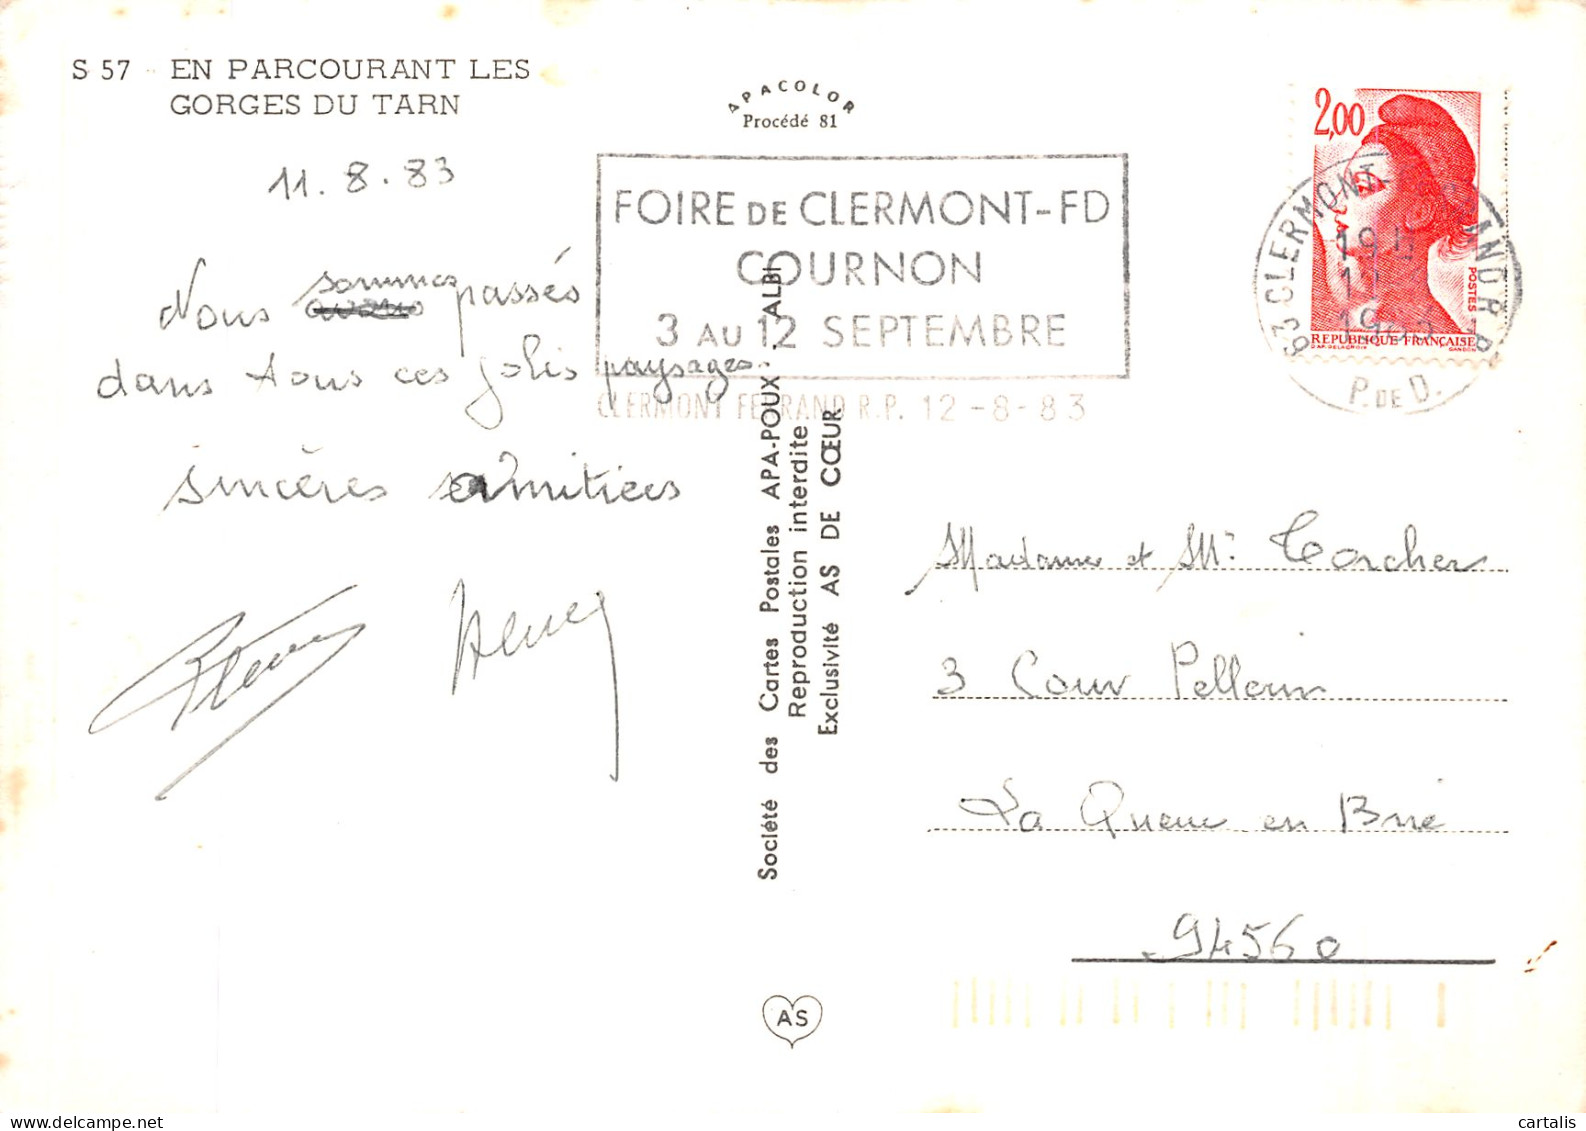 S 57 EN PARCOURANT LES
GORGES DU TARN
11.8.83
Nous sommes passés
dans tous ces jolis paysages
sincères amitiées
APACOLOR
Procédé 81
FOIRE DE CLERMONT-FD
COURNON
3 AU 12 SEPTEMBRE
CLERMONT FERRAND R.P. 12-8-83
2,00
POSTES
RÉPUBLIQUE FRANÇAISE
D'AP. DELACROIX GANDON
63 CLERMONT FERRAND R.P.
P. DE D.
Société des Cartes Postales APA-POUX - ALBI
Reproduction interdite
Exclusivité AS DE CŒUR
Madame et Mr:
3 Cour Pellerin
La Queue en Brie
94560
AS
cartalis